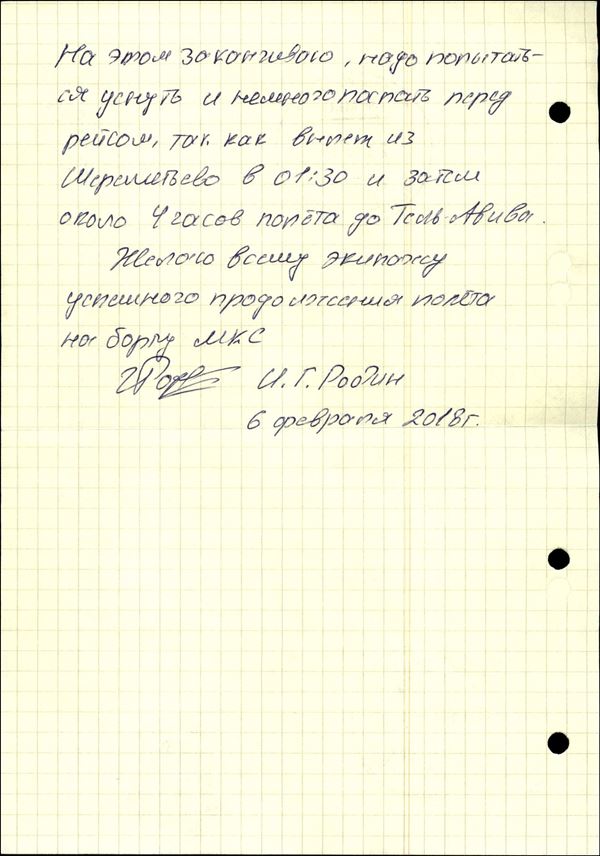 На этом заканчиваю, надо попытать-
ся уснуть и немного поспать перед
рейсом, так как вылет из
Шереметьево в 01:30 и затем
около 4 часов полёта до Тель-Авива.
Желаю всему экипажу
успешного продолжения полёта
на борту МКС
И.Г. Родин
6 февраля 2018г.